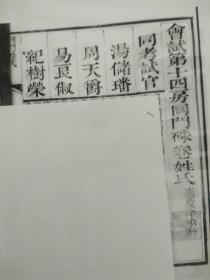 會試第十四房同門硃卷姓氏
同考試官
湯儲璠
周天爵
易良俶
紀樹榮